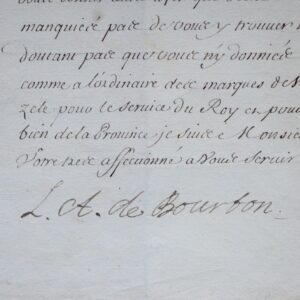 manquiéré pas de vous y trouver
doutant pas que vous n'y donniés
comme a l'ordinaire des marques de
zele pour le service du Roy et pour
bien de la Province je suis Monsie
Votre tres affectionné a vous servir
L. A. de Bourbon.